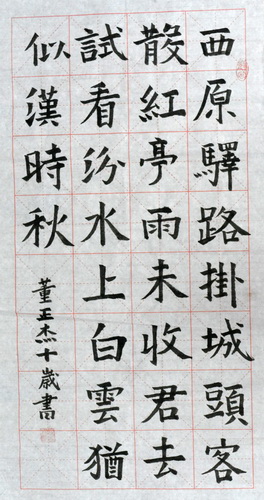 西原驛路掛城頭客
散紅亭雨未收君去
試看汾水上白雲猶
似漢時秋
董正杰十歲書